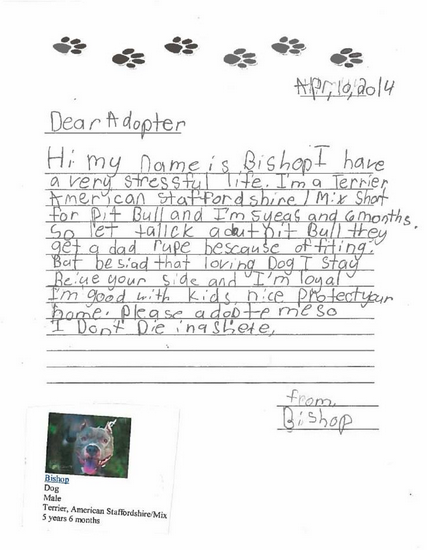 Apr, 10, 2014
Dear Adopter
Hi my name is Bishop I have
a very stressful life. I'm a Terrier
American Staffordshire / Mix Shot
for Pit Bull and I'm 5 yeas and 6 months.
So let talick adout pit Bull they
get a dad rupe bescause of fiting.
But besiad that loving Dog I stay
Beiue your side and I'm loyal
I'm good with kids, nice protect your
home. Please adopte me so
I Don't Die in a shere.
from
Bishop
Bishop
Dog
Male
Terrier, American Staffordshire/Mix
5 years 6 months